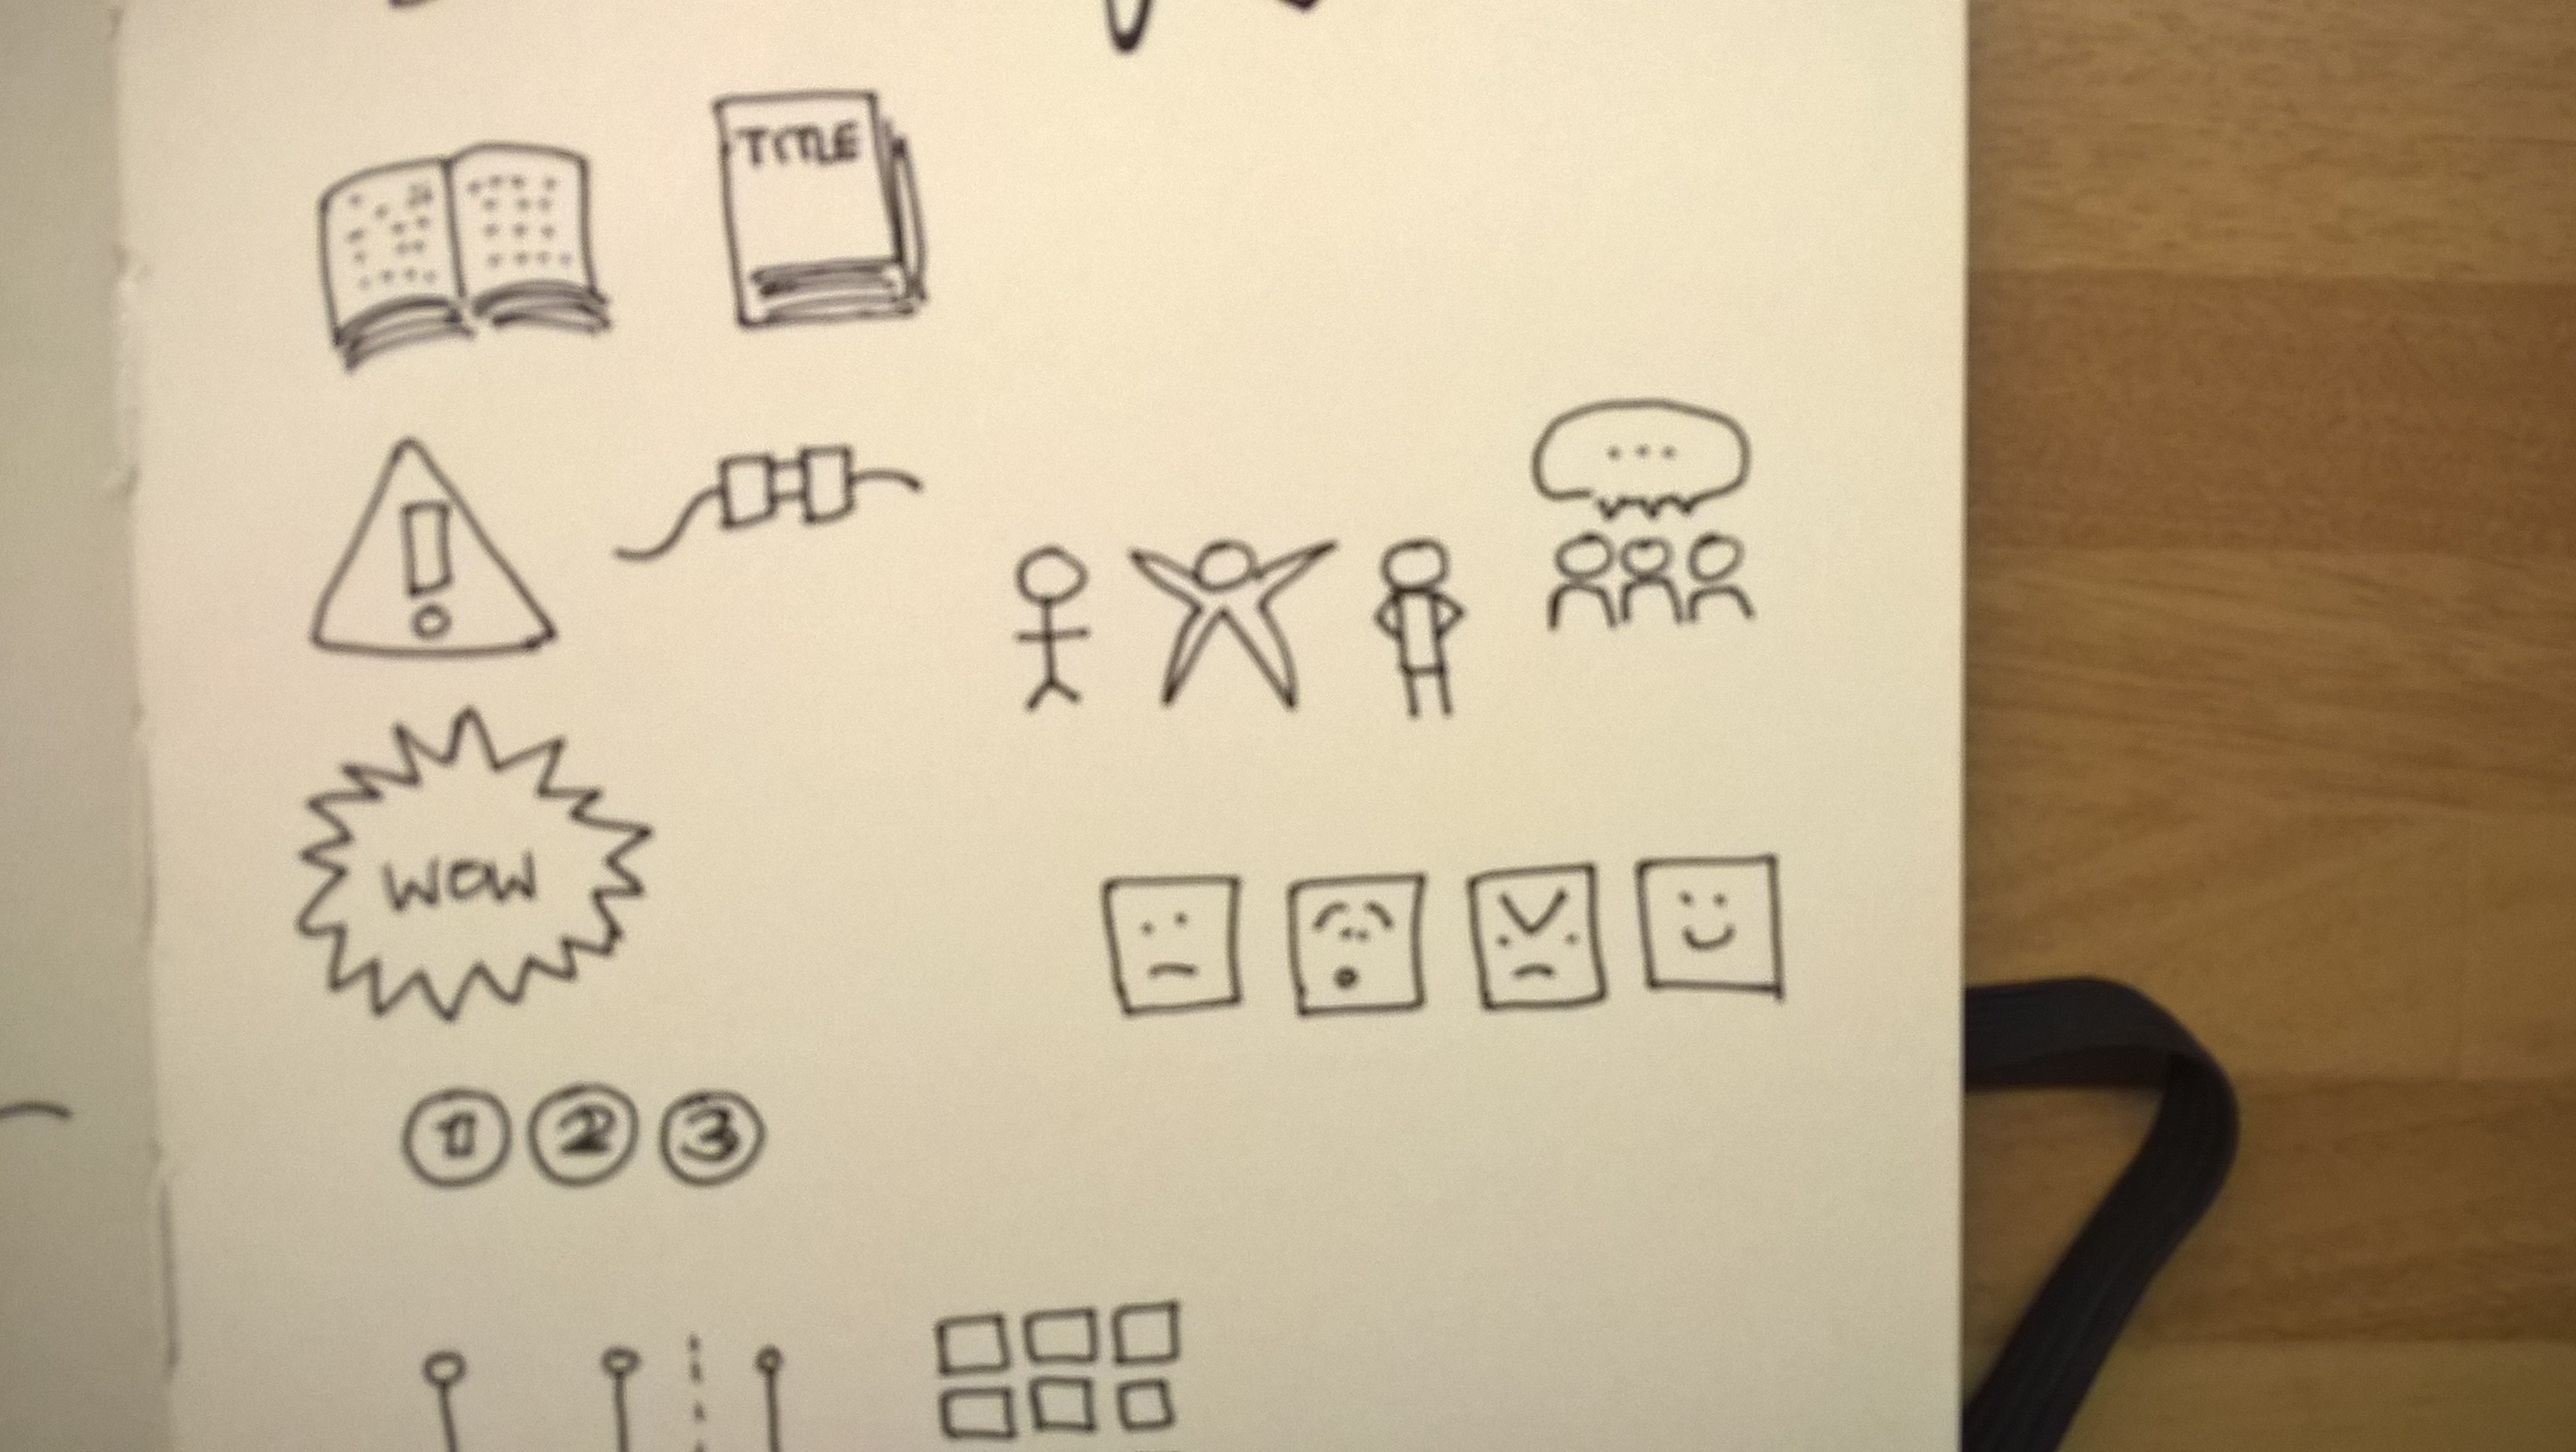 TITLE
...
WOW
1 2 3